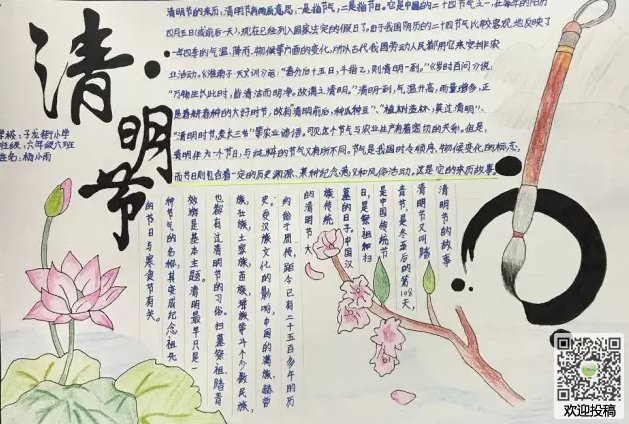 清明节
学校:子龙街小学
班级:六年级六班
姓名:杨小雨
清明节的来历:清明节有两层意思,一是指节气,二是指节日。它是中国的二十四节气之一,在每年的阳历
四月五日(或前后一天),现在已经列入国家法定的假日了。由于我国阴历的二十四节气比较客观地反映了
一年四季的气温、降雨、物候等方面的变化,所以古代我国劳动人民都用它来安排农
业活动。《淮南子·天文训》云:“春分后十五日,斗指乙,则清明一到。”《岁时百问》说:
“万物生长此时,皆清洁而明净。故谓之清明。”清明一到,气温升高,雨量增多,正
是春耕春种的大好时节,故有“清明前后,种瓜种豆”、“植树造林,莫过清明”、
“清明时节,麦长三节”等农业谚语。可见这个节气与农业生产有着密切的关系。但是,
清明作为一个节日,与纯粹的节气又有所不同。节气是我国时令顺序、物候变化的标志,
而节日则包含着一定的历史渊源、某种纪念意义和风俗活动。这是它的来历故事。
清明节的故事
清明节又叫踏
青节,是冬至后的第108天,
是中国传统节
日,是祭祖和扫
墓的日子。中国汉
族传统
的清明节
约始于周代,距今已有二千五百多年的历
史。受汉族文化的影响,中国的满族、赫哲
族、壮族、土家族、苗族、瑶族等24个少数民族,
也都有过清明节的习俗。扫墓祭祖、踏青
郊游是基本主题。清明最早只是一
种节气的名称,其变成纪念祖先
的节日与寒食节有关。
欢迎投稿